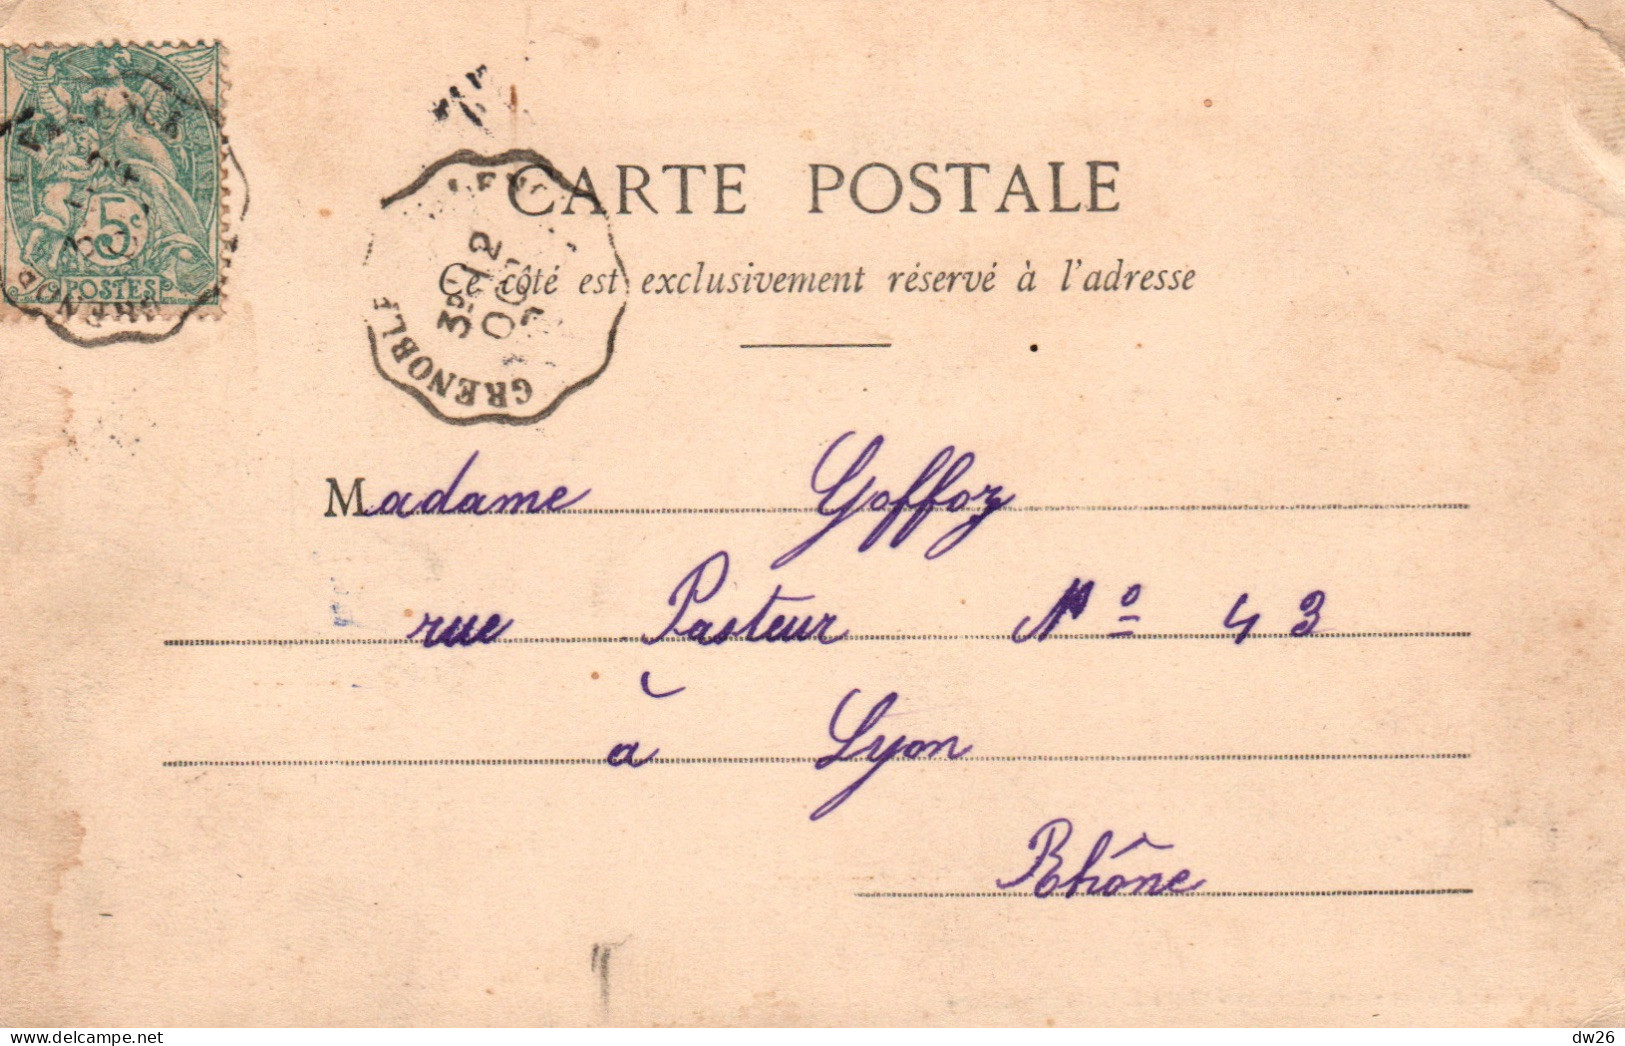 5c
POSTES
CARTE POSTALE
Ce côté est exclusivement réservé à l'adresse
GRENOBLE
12
Madame Goffoz
rue Pasteur Nº 43
à Lyon
Rhône
dw26